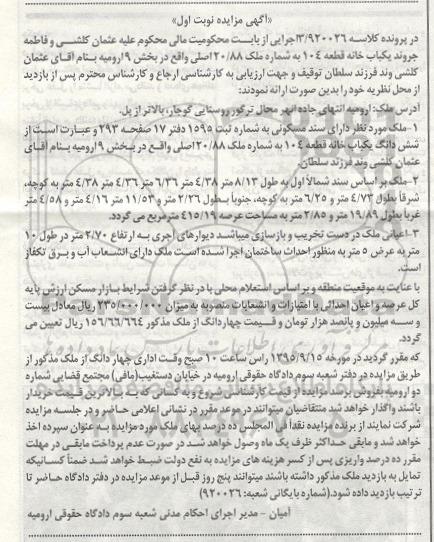 «آگهی مزایده نوبت اول»
در پرونده کلاسه ۳/۹۲۰۰۲۶اجرایی از بابت محکومیت مالی محکوم علیه عثمان کلشی و فاطمه
جروند یکباب خانه قطعه ۱۰۴ به شماره ملک ۲۰/۸۸اصلی واقع در بخش ۹ارومیه بنام آقای عثمان
کلشی وند فرزند سلطان توقیف و جهت ارزیابی به کارشناسی ارجاع و کارشناس محترم پس از بازدید
از محل نظریه خود را بدین صورت ارائه نمودند:
آدرس ملک: ارومیه انتهای جاده انهر محال ترگور روستایی گوجار، بالاتر از پل.
۱-ملک مورد نظر دارای سند مسکونی به شماره ثبت ۱۵۹۵ دفتر ۱۷ صفحه ۲۹۳ و عبارت است از
شش دانگ یکباب خانه قطعه ۱۰۴ به شماره ملک ۲۰/۸۸اصلی واقع در بخش ۹ارومیه بنام آقای
عثمان کلش وند فرزند سلطان.
۲-ملک بر اساس سند شمالاً اول به طول ۸/۱۳ متر ۴/۳۸ متر ۶/۳۶ متر ۴/۳۶ متر ۴/۳۸ متر به کوچه،
شرقا بطول ۴/۷۳ متر و ۶/۲۵ متر به کوچه، جنوبا بطول ۲/۲۶ متر و ۱۱/۵۳ متر ۴/۱۶ متر و ۴/۵۸ متر
غربا بطول ۱۹/۸۹ متر و ۲/۸۵ متر به مساحت عرصه ۴۱۵/۱۹ مترمربع می گردد.
۳-اعیانی ملک در دست تخریب و بازسازی میباشد دیوارهای آجری به ارتفاع ۲/۷۰ متر در طول ۱۰
متر به عرض ۵ متر به منظور احداث ساختمان اجرا شده است ملک دارای انشعاب آب و برق تکفاز
است.
با عنایت به موقعیت منطقه و بر اساس استعلام محلی با در نظر گرفتن شرایط بازار مسکن ارزش پایه
کل عرصه و اعیان احداثی با امتیازات و انشعابات منصوبه به میزان ۲۳۵/۰۰۰/۰۰۰ ریال معادل بیست
و سه میلیون و پانصد هزار تومان و قیمت چهار دانگ از ملک مذکور ۱۵۶/۶۶/۶۶۴ ریال تعیین می
گردد.
که مقرر گردید در مورخه ۱۳۹۵/۹/۱۵ راس ساعت ۱۰ صبح وقت اداری چهار دانگ از ملک مذکور از
طریق مزایده در دفتر شعبه سوم دادگاه حقوقی ارومیه در خیابان دستغیب(مافی) مجتمع قضایی شماره
دو ارومیه بفروش برسد مزایده از قیمت کارشناسی شروع و به کسانی که به بالاترین قیمت خریدار
باشند واگذار خواهد شد متقاضیان میتوانند در موعد مقرر در نشانی اعلامی حاضر و در جلسه مزایده
شرکت نمایند از برنده مزایده نقداً فی المجلس ده درصد بهای ملک مورد مزایده به عنوان سپرده اخذ
خواهد شد و مابقی حداکثر ظرف یک ماه وصول خواهد شد در صورت عدم پرداخت مابقی در مهلت
مقرر ده درصد واریزی پس از کسر هزینه های مزایده به نفع دولت ضبط خواهد شد ضمناً کسانیکه
تمایل به بازدید ملک مذکور داشته باشند میتوانند پنج روز قبل از موعد مزایده در دفتر دادگاه حاضر تا
ترتیب بازدید داده شود.(شماره بایگانی شعبه: ۹۲۰۰۲۶)
آمیان - مدیر اجرای احکام مدنی شعبه سوم دادگاه حقوقی ارومیه